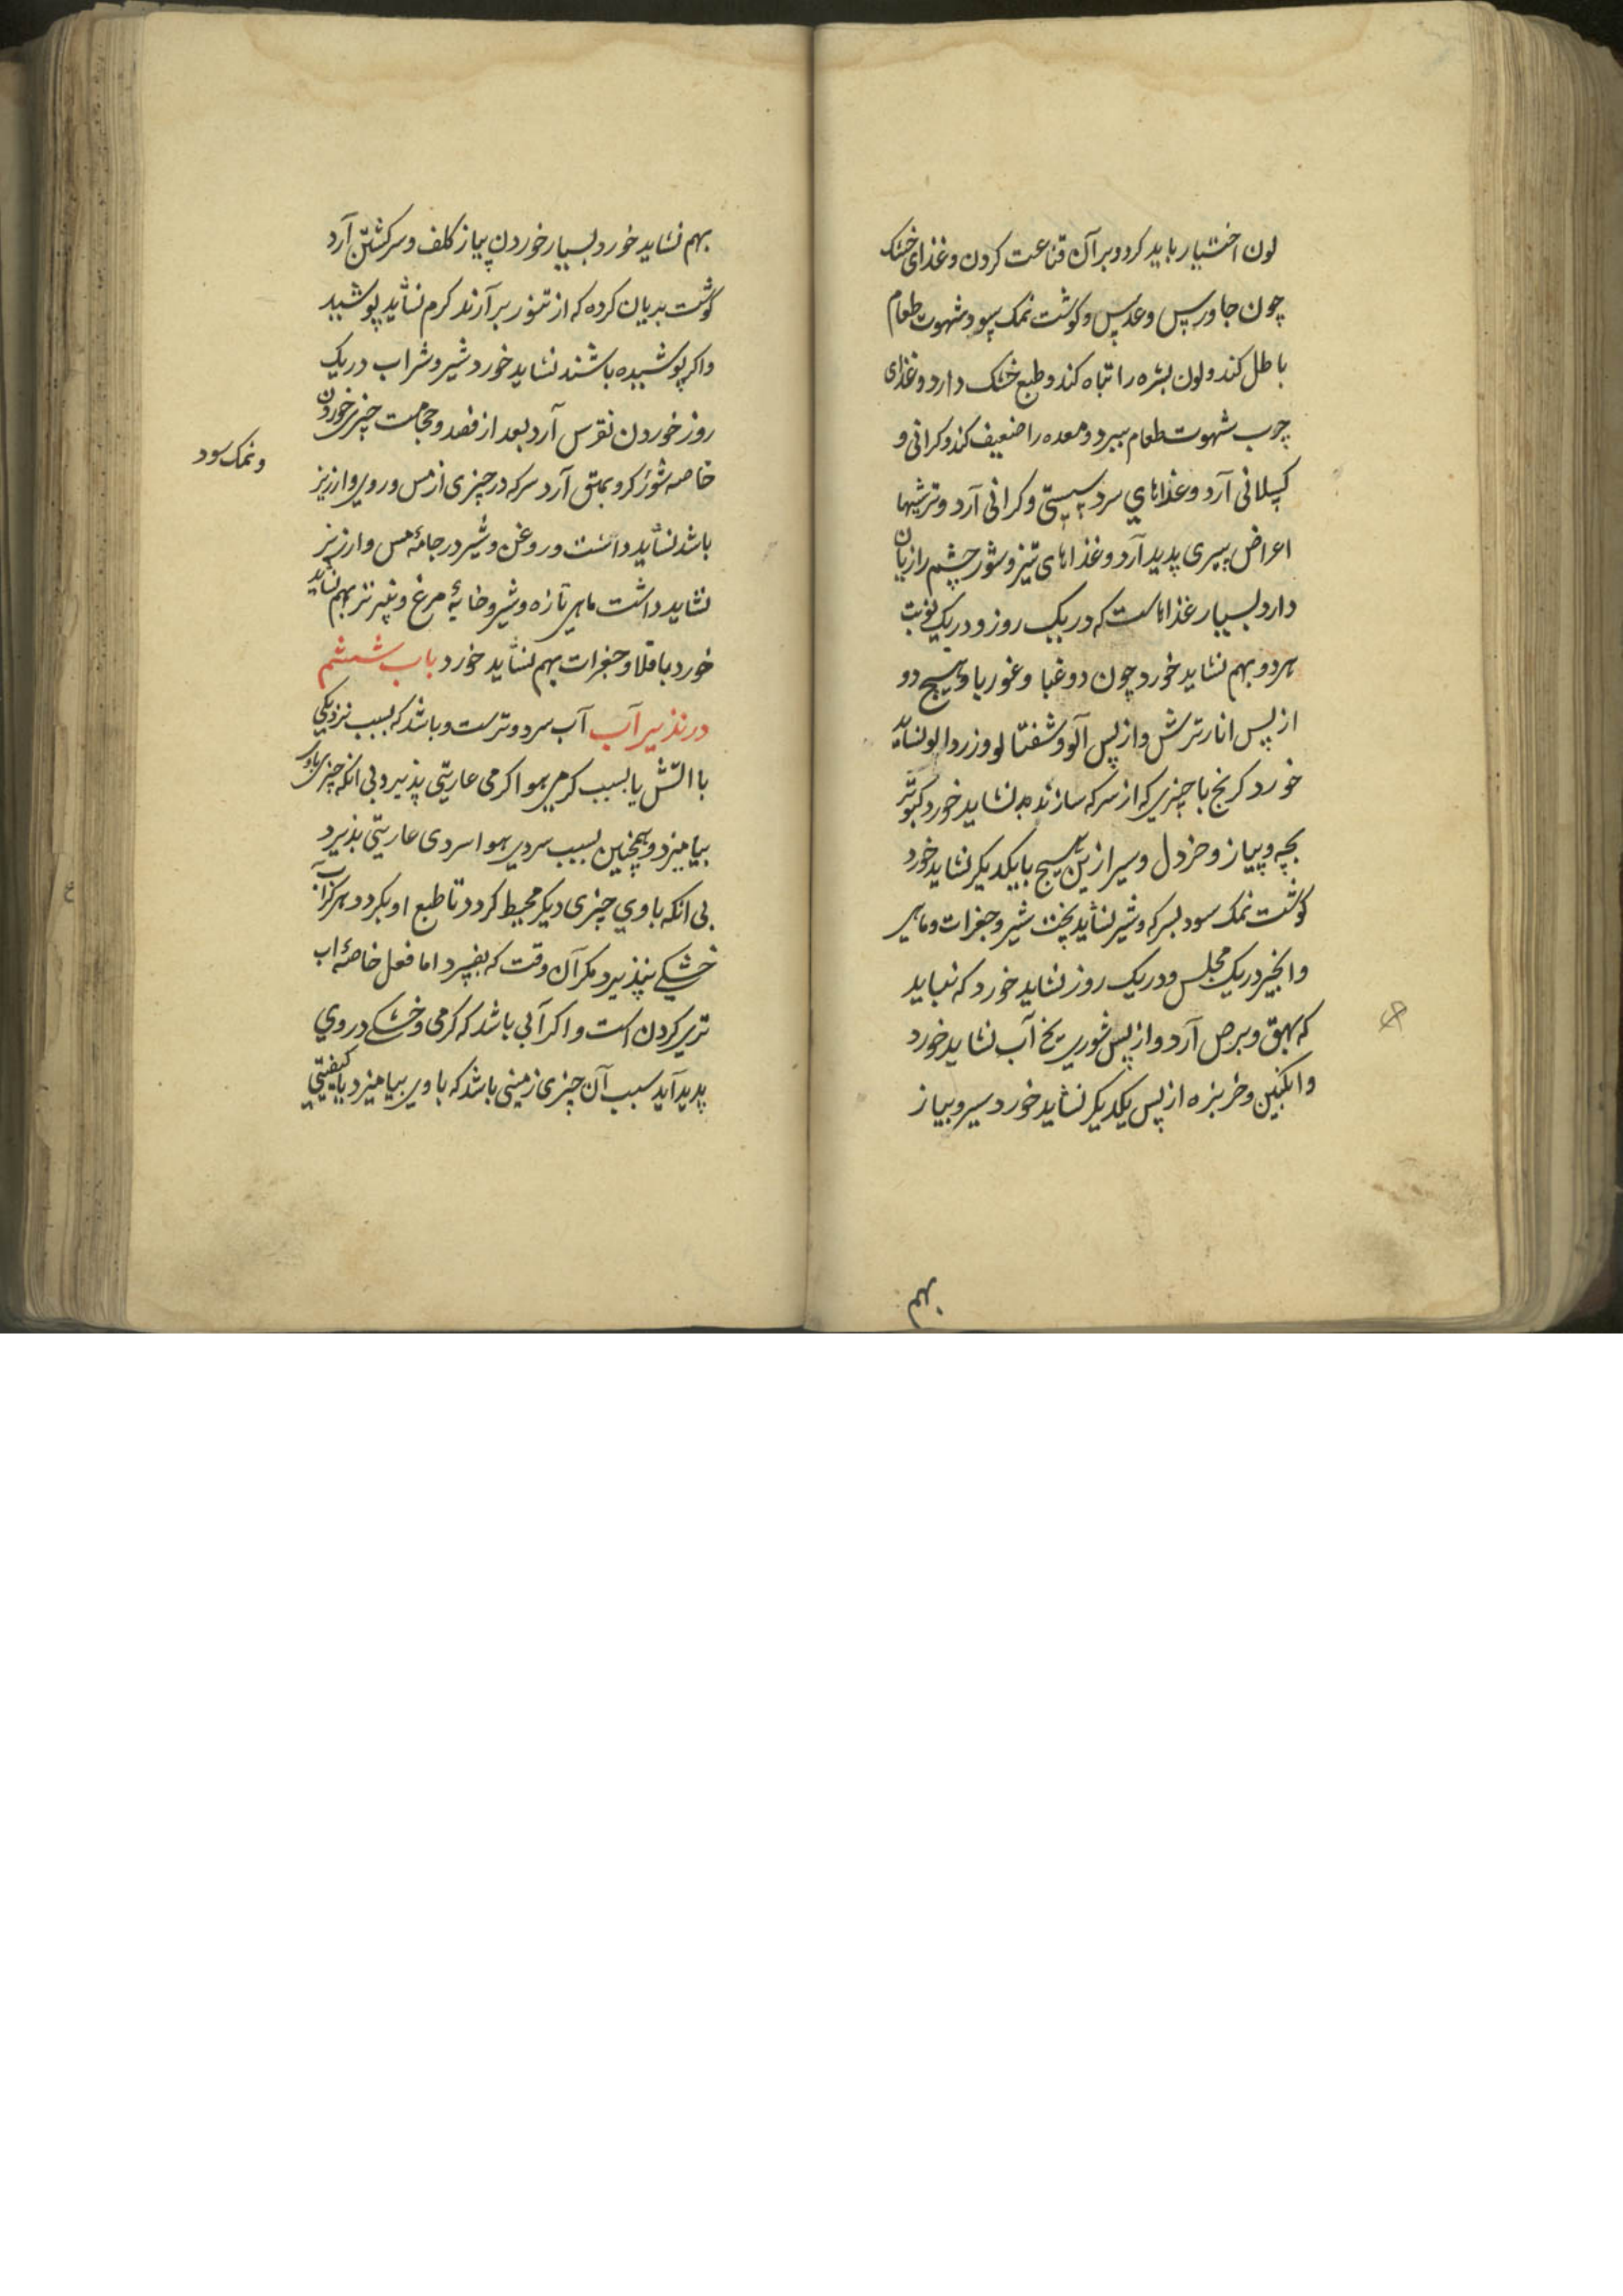 لون اختیار باید کرد و بر آن قناعت کردن و غذای خشک
چون جاورس و عدس و کوشت نمک سود شهوت طعام
باطل کند و لون بشره را تباه کند و طبع خشک دارد و غذای
چرب شهوت طعام ببرد و معده را ضعیف کند و کرانی و
کسلانی آرد و غذاهای سرد سستی و کرانی آرد و ترشیها
اعراض پیری پدید آرد و غذاهای تیز و شور چشم را زیان
دارد بسیار غذاهاست که در یک روز و در یک نوبت
هر دو بهم نشاید خورد چون دوغبا و غوربا و هیچ دو
از پس انار ترش و از پس آلو و شفتالو و زردالو نشاید
خورد کرنج با چیزی که از سرکه سازند نشاید خورد کبوتر
بچه و پیاز و خردل و سیر ازین هیچ با یکدیکر نشاید خورد
کوشت نمک سود بسرکه و شیر نشاید پخت شیر و جغرات و ماهی
و انجیر در یک مجلس و در یک روز نشاید خورد که نباید
که بهق و برص آرد و از پس شوری یخ آب نشاید خورد
و انکبین و خربزه از پس یکدیکر نشاید خورد سیر و پیاز
بهم
بهم نشاید خورد بسیار خوردن پیاز کلف و سرکشتن آرد
کوشت بریان کرده که از تنور برآرند کرم نشاید پوشید
و اکر پوشیده باشند نشاید خورد شیر و شراب در یک
روز خوردن نقرس آرد بعد از فصد و حجامت چیزی خوردن
و نمک سود
خاصه شور کر و بهق آرد سرکه در چیزی از مس و روی و ارزیز
باشد نشاید داشت و روغن و شیر در جامهٔ مس و ارزیز
نشاید داشت ماهی تازه و شیر و خایهٔ مرغ و پنیر تر بهم نشاید
خورد باقلا و جغرات بهم نشاید خورد باب ششم
در تدبیر آب آب سرد و ترست و باشد که بسبب نزدیکی
با اتش یا بسبب کرمی هوا کرمی عاریتی پذیرد بی انکه چیزی با وی
بیامیزد و همچنین بسبب سردی هوا سردی عاریتی پذیرد
بی انکه با وی چیزی دیکر محیط کردد تا طبع او بکردد و هرکز آب
خشکی نپذیرد مکر آن وقت که بفسرد اما فعل خاصهٔ اب
تری کردن است و اکر آبی باشد که کرمی و خشکی در وی
پدید آید سبب آن چیزی زمینی باشد که با وی بیامیزد یا کیفیتی